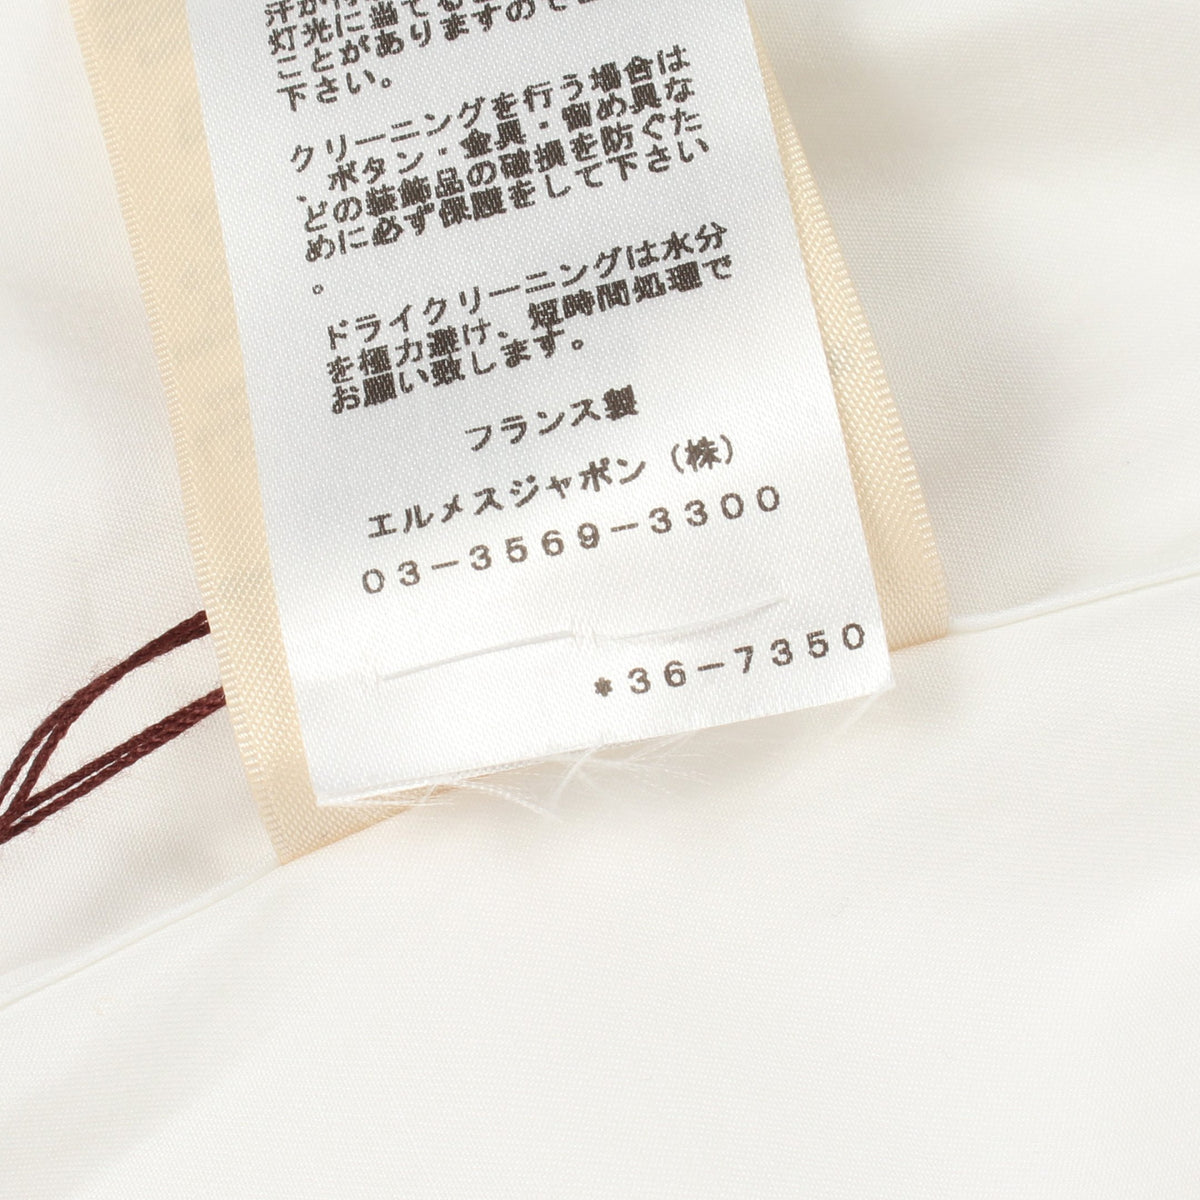 灯光に当てる
ことがありますので
下さい。
クリーニングを行う場合は
、ボタン・金具・留め具な
どの装飾品の破損を防ぐた
めに必ず保護をして下さい
。
ドライクリーニングは水分
を極力避け、短時間処理で
お願い致します。
フランス製
エルメスジャポン（株）
03-3569-3300
*36-7350